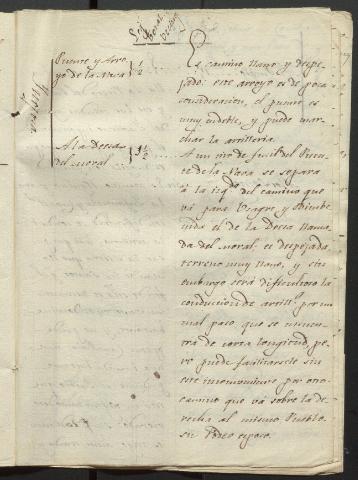 Puente y Arro-
yo de la Vaca } 1/2
A la Deesa
del moral } 1 1/2
Es camino llano y despe-
jado: este arroyo es de poca
consideracion, el puente es
muy endeble, y puede mar-
char la artilleria.
A un tiro de fucil del Puen-
te de la Vaca se separa
á la izqda. del camino que
vá para
vida el de la Deesa llama-
da del moral es despejada
terreno muy llano, y sin
embargo será dificultoso la
conducion de artilla. por un
mal paso, que se encuen-
tra de corta longitud, pe-
ro puede facilitarsele sin
este inconveniente por otro
camino que vá sobre la de-
recha al mismo Pueblo
sin Rodeo